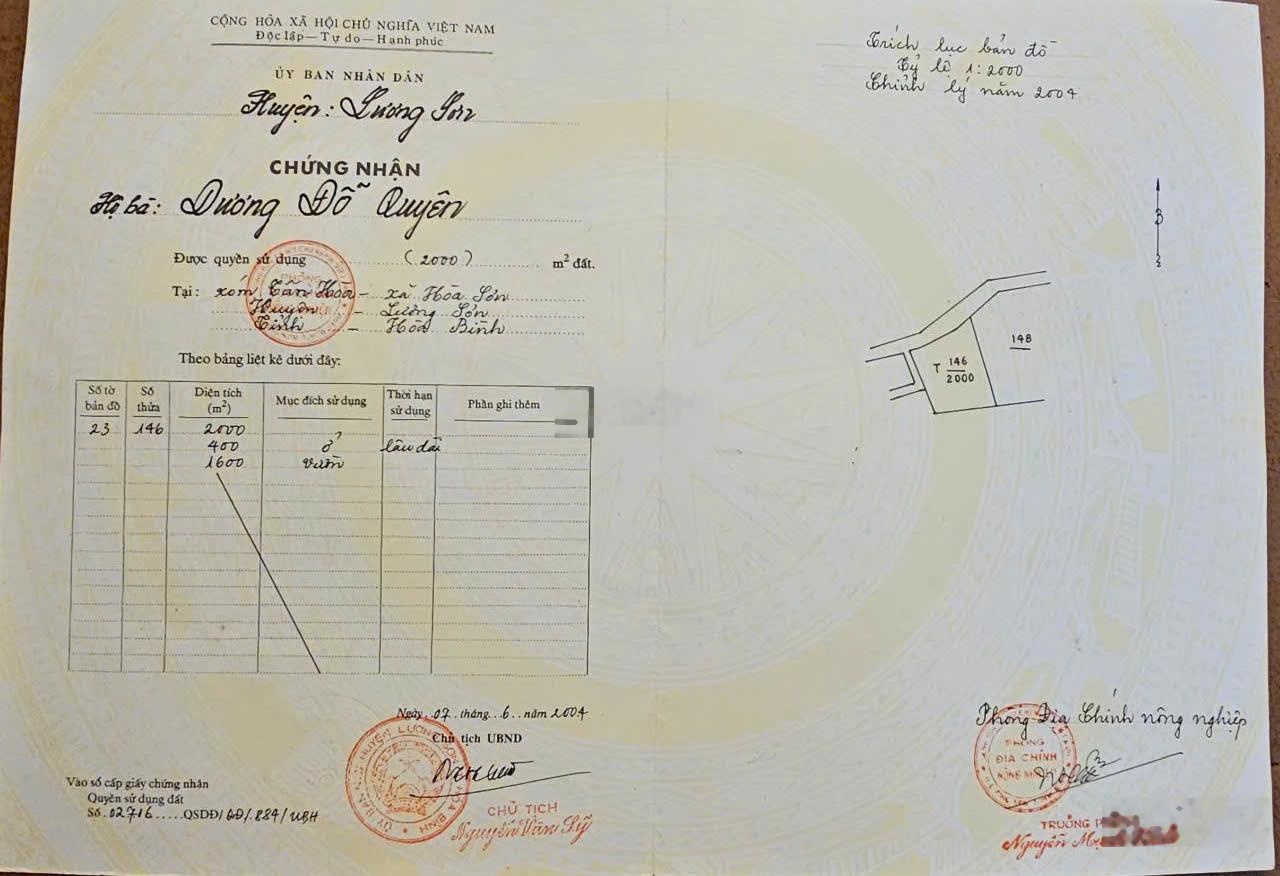 CỘNG HÒA XÃ HỘI CHỦ NGHĨA VIỆT NAM
Độc lập — Tự do — Hạnh phúc
ỦY BAN NHÂN DÂN
Huyện: Lương Sơn
CHỨNG NHẬN
Hộ bà: Dương Đỗ Quyên
Được quyền sử dụng (2000) m² đất.
Tại: xóm Tân Hòa - xã Hòa Sơn
Huyện - Lương Sơn
Tỉnh - Hòa Bình
Theo bảng liệt kê dưới đây:
Số tờ bản đồ Số thửa Diện tích (m²) Mục đích sử dụng Thời hạn sử dụng Phần ghi thêm
23 146 2000
400 ở lâu dài
1600 vườn
Ngày 07 tháng 6 năm 2004
Chủ tịch UBND
CHỦ TỊCH
Nguyễn Văn Sỹ
Vào sổ cấp giấy chứng nhận
Quyền sử dụng đất
Số 02716 QSDĐ/ QĐ/.884/UBH
Trích lục bản đồ
Tỷ lệ 1:2000
Chỉnh lý năm 2004
B
148
T 146
2000
Phòng Địa Chính nông nghiệp
PHÒNG
ĐỊA CHÍNH
TRƯỞNG
Nguyễn